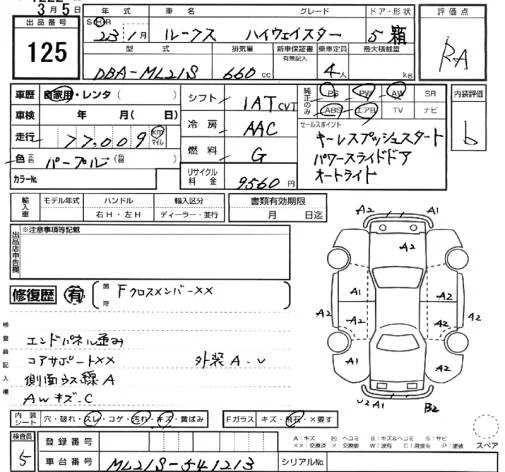 3月5日
出品番号
125
年式 車名 グレード ドア・形状
S H 23 1月 ルークス ハイウェイスター 5 箱
型式 排気量 新車保証書 乗車定員 最大積載量
有無記入
DBA-ML21S 660 cc 4人 kg
評価点
RA
車歴 自家用・レンタ( )
車検 年 月( 日)
走行 77,009 Km マイル
色 パープル(色替 )
カラーNo.
シフト IAT CVT
冷房 AAC
燃料 G
リサイクル料金 9560円
純正のみ PS PW AW SR
ABS エアB TV ナビ
内装評価
b
セールスポイント
キーレスプッシュスタート
パワースライドドア
オートライト
輸入車 モデル年式 ハンドル 輸入区分
右H・左H ディーラー・並行
書類有効期限
月 日迄
出品店申告欄
※注意事項等記載
修復歴 有 箇所 FクロスメンバーXX
検査員記入欄
エンドパネル歪み
コアサポートXX 外装A.U
側面ウス線A
AWキズ-C
A2 A1
A2
A2 A2 A2
A2 A2
A1 A2
A2
U2 A1 B2
内装シート 穴・破れ・スレ・コゲ・汚れ・キズ・黄ばみ
Fガラス キズ・飛石・X要す
スペア
A:キズ U:凹ヘコミ B:キズ&ヘコミ S:サビ
XX:交換済 X:交換跡 W:波有 C:腐食 P:塗装
検査員
5
登録番号
車台番号 ML21S-541213 シリアルNo.